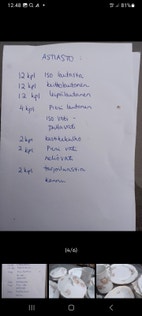 12.48
91%
ASTIASTO:
12 kpl iso lautasta
12 kpl kahvilautanen
12 kpl leipälautanen
4 kpl Pieni lautanen
iso vati -
2 kpl kastikekulho
2 kpl Pieni vati
neliö vati
2 kpl tarjoilu
kannu
(4/6)